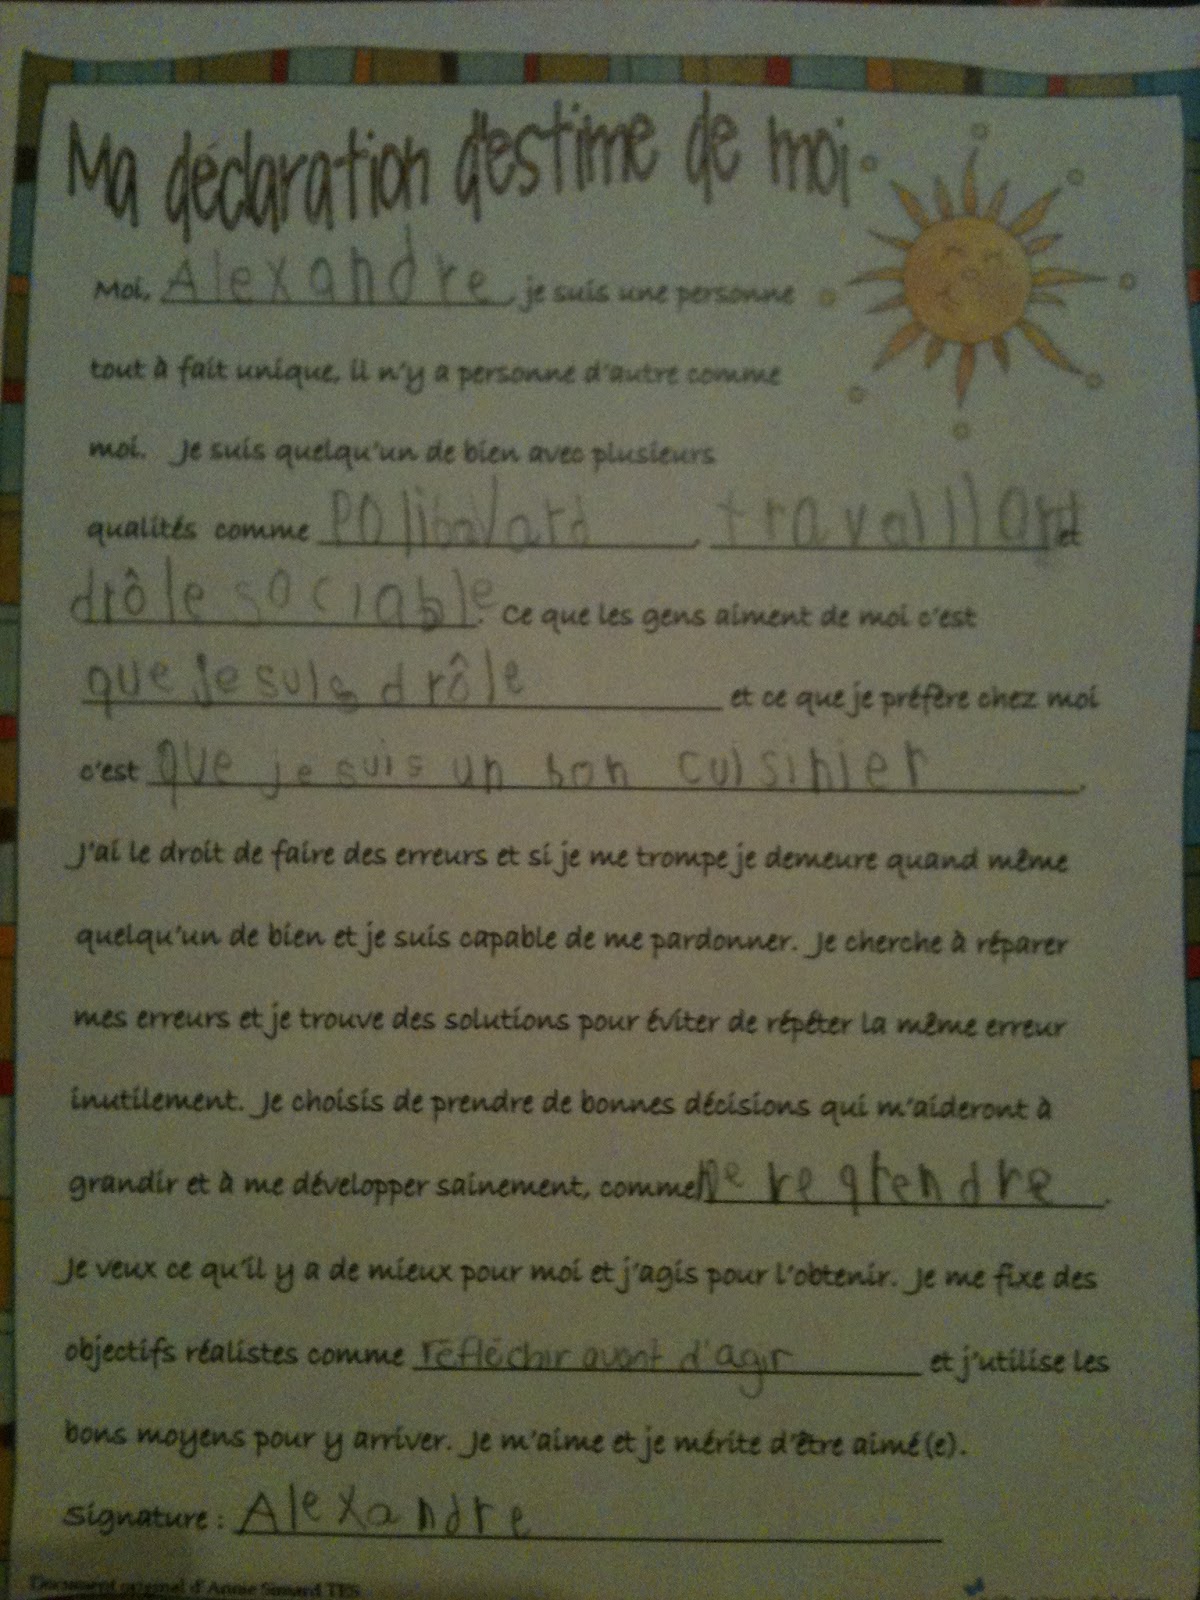 Ma déclaration d'estime de moi
Moi, Alexandre, je suis une personne
tout à fait unique, il n'y a personne d'autre comme
moi. Je suis quelqu'un de bien avec plusieurs
qualités comme polibalard, travaillard et
drôle sociable. Ce que les gens aiment de moi c'est
que je suis drôle et ce que je préfère chez moi
c'est que je suis un bon cuisinier.
J'ai le droit de faire des erreurs et si je me trompe je demeure quand même
quelqu'un de bien et je suis capable de me pardonner. Je cherche à réparer
mes erreurs et je trouve des solutions pour éviter de répéter la même erreur
inutilement. Je choisis de prendre de bonnes décisions qui m'aideront à
grandir et à me développer sainement, comme
Je veux ce qu'il y a de mieux pour moi et j'agis pour l'obtenir. Je me fixe des
objectifs réalistes comme réfléchir avant d'agir et j'utilise les
bons moyens pour y arriver. Je m'aime et je mérite d'être aimé(e).
Signature : Alexandre
Document original d'Annie Simard TES